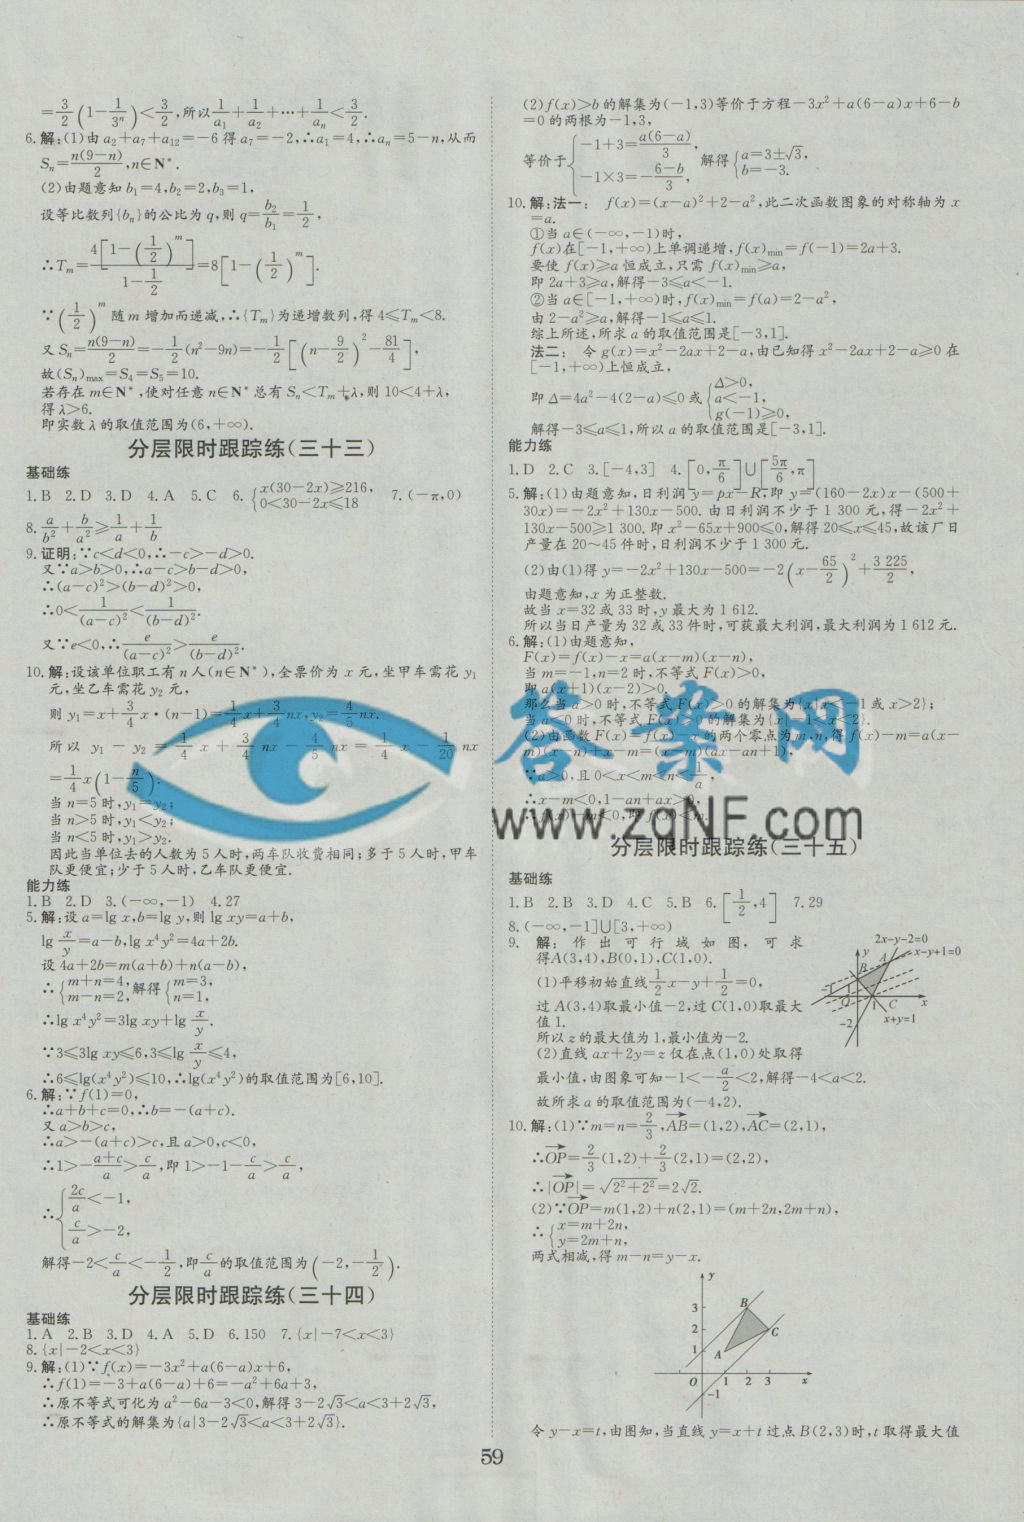 =3/2(1-1/3ⁿ)<3/2,所以1/a₁+1/a₂+…+1/aₙ<3/2.
6.解:(1)由a₂+a₇+a₁₂=-6得a₇=-2,∴a₁=4,∴aₙ=5-n,从而
Sₙ=n(9-n)/2,n∈N*.
(2)由题意知b₁=4,b₂=2,b₃=1,
设等比数列{bₙ}的公比为q,则q=b₂/b₁=1/2,
∴Tₘ=4[1-(1/2)^m]/(1-1/2)=8[1-(1/2)^m].
∵(1/2)^m随m增加而递减,∴{Tₘ}为递增数列,得4≤Tₘ<8.
又Sₙ=n(9-n)/2=-1/2(n²-9n)=-1/2[(n-9/2)²-81/4],
故(Sₙ)max=S₄=S₅=10.
若存在m∈N*,使对任意n∈N*总有Sₙ<Tₘ+λ,则10<4+λ,
得λ>6.
即实数λ的取值范围为(6,+∞).
分层限时跟踪练(三十三)
基础练
1.B 2.D 3.D 4.A 5.C 6.{x(30-2x)≥216, 0<30-2x≤18 7.(-π,0)
8.a/b²+b/a²≥1/a+1/b
9.证明:∵c<d<0,∴-c>-d>0.
又∵a>b>0,∴a-c>b-d>0,
∴(a-c)²>(b-d)²>0,
∴0<1/(a-c)²<1/(b-d)².
又∵e<0,∴e/(a-c)²>e/(b-d)².
10.解:设该单位职工有n人(n∈N*),全票价为x元,坐甲车需花y₁
元,坐乙车需花y₂元,
则y₁=x+3/4x·(n-1)=1/4x+3/4nx,y₂=4/5nx.
所以y₁-y₂=1/4x+3/4nx-4/5nx=1/4x-1/20nx
=1/4x(1-n/5).
当n=5时,y₁=y₂;
当n>5时,y₁<y₂;
当n<5时,y₁>y₂.
因此当单位去的人数为5人时,两车队收费相同;多于5人时,甲车
队更便宜;少于5人时,乙车队更便宜.
能力练
1.B 2.D 3.(-∞,-1) 4.27
5.解:设a=lg x,b=lg y,则lg xy=a+b,
lg x/y=a-b,lg x⁴y²=4a+2b.
设4a+2b=m(a+b)+n(a-b),
∴{m+n=4, m-n=2,解得{m=3, n=1,
∴lg x⁴y²=3lg xy+lg x/y.
∵3≤3lg xy≤6,3≤lg x/y≤4,
∴6≤lg(x⁴y²)≤10,∴lg(x⁴y²)的取值范围为[6,10].
6.解:∵f(1)=0,
∴a+b+c=0,∴b=-(a+c).
又a>b>c,
∴a>-(a+c)>c,且a>0,c<0,
∴1>-(a+c)/a>c/a,即1>-1-c/a>c/a,
∴{2c/a<-1, c/a>-2,
解得-2<c/a<-1/2,即c/a的取值范围为(-2,-1/2).
分层限时跟踪练(三十四)
基础练
1.A 2.B 3.D 4.A 5.D 6.150 7.{x|-7<x<3}
8.{x|-2<x<3}
9.解:(1)∵f(x)=-3x²+a(6-a)x+6,
∴f(1)=-3+a(6-a)+6=-a²+6a+3,
∴原不等式可化为a²-6a-3<0,解得3-2√3<a<3+2√3,
∴原不等式的解集为{a|3-2√3<a<3+2√3}.
(2)f(x)>b的解集为(-1,3)等价于方程-3x²+a(6-a)x+6-b
=0的两根为-1,3,
等价于{-1+3=a(6-a)/3, -1×3=-(6-b)/3,解得{a=3±√3, b=-3.
10.解:法一: f(x)=(x-a)²+2-a²,此二次函数图象的对称轴为x
=a.
①当a∈(-∞,-1)时,
f(x)在[-1,+∞)上单调递增,f(x)min=f(-1)=2a+3.
要使f(x)≥a恒成立,只需f(x)min≥a,
即2a+3≥a,解得-3≤a<-1.
②当a∈[-1,+∞)时,f(x)min=f(a)=2-a²,
由2-a²≥a,解得-1≤a≤1.
综上所述,所求a的取值范围是[-3,1].
法二: 令g(x)=x²-2ax+2-a,由已知得x²-2ax+2-a≥0在
[-1,+∞)上恒成立,
即Δ=4a²-4(2-a)≤0或{Δ>0, a<-1, g(-1)≥0,
解得-3≤a≤1,所以a的取值范围是[-3,1].
能力练
1.D 2.C 3.[-4,3] 4.[0,π/6]∪[5π/6,π]
5.解:(1)由题意知,日利润y=px-R,即y=(160-2x)x-(500+
30x)=-2x²+130x-500.由日利润不少于1 300元,得-2x²+
130x-500≥1 300.即x²-65x+900≤0,解得20≤x≤45,故该厂日
产量在20~45件时,日利润不少于1 300元.
(2)由(1)得y=-2x²+130x-500=-2(x-65/2)²+3 225/2,
由题意知,x为正整数.
故当x=32或33时,y最大为1 612.
所以当日产量为32或33件时,可获最大利润,最大利润为1 612元.
6.解:(1)由题意知,
F(x)=f(x)-x=a(x-m)(x-n),
当m=-1,n=2时,不等式F(x)>0,
即a(x+1)(x-2)>0.
那么当a>0时,不等式F(x)>0的解集为{x|x<-1或x>2};
当a<0时,不等式F(x)>0的解集为{x|-1<x<2}.
(2)由函数F(x)=f(x)-x的两个零点为m,n,得f(x)-m=a(x-
m)(x-n)+x-m=(x-m)(ax-an+1),
∵a>0,且0<x<m<n<1/a,
∴x-m<0,1-an+ax>0,
∴f(x)-m<0,即f(x)<m.
答案网
www.zqNF.com
分层限时跟踪练(三十五)
基础练
1.B 2.B 3.D 4.C 5.B 6.[1/2,4] 7.29
8.(-∞,-1]∪[3,+∞)
9.解:作出可行域如图,可求
得A(3,4),B(0,1),C(1,0).
(1)平移初始直线1/2x-y+1/2=0,
过A(3,4)取最小值-2,过C(1,0)取最大
值1.
所以z的最大值为1,最小值为-2.
(2)直线ax+2y=z仅在点(1,0)处取得
最小值,由图象可知-1<-a/2<2,解得-4<a<2.
故所求a的取值范围为(-4,2).
2x-y-2=0
x-y+1=0
y
A
B
-1
1
O
1
C
x
-2
x+y=1
10.解:(1)∵m=n=2/3,AB=(1,2),AC=(2,1),
∴OP=2/3(1,2)+2/3(2,1)=(2,2),
∴|OP|=√(2²+2²)=2√2.
(2)∵OP=m(1,2)+n(2,1)=(m+2n,2m+n),
∴{x=m+2n, y=2m+n,
两式相减,得m-n=y-x.
y
3
2
1
B
C
A
O
1 2 3
x
-1
令y-x=t,由图知,当直线y=x+t过点B(2,3)时,t取得最大值
59